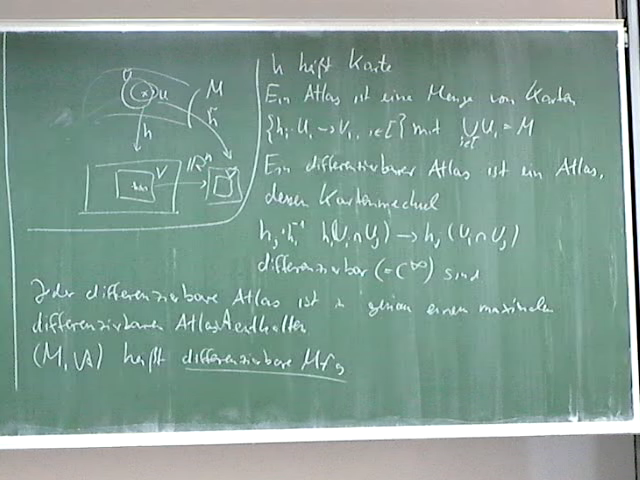 Ũ
x
U
M
h
h̃
V
ℝⁿ
h(x)
Ṽ
h heißt Karte
Ein Atlas ist eine Menge von Karten
{hᵢ: Uᵢ → Vᵢ, i∈I} mit ⋃ Uᵢ = M
i∈I
Ein differenzierbarer Atlas ist ein Atlas,
dessen Kartenwechsel
hⱼ∘hᵢ⁻¹ hᵢ(Uᵢ∩Uⱼ) → hⱼ(Uᵢ∩Uⱼ)
differenzierbar (= C^∞) sind
Jeder differenzierbare Atlas ist in genau einem maximalen
differenzierbaren Atlas A enthalten
(M, A) heißt differenzierbare Mfg